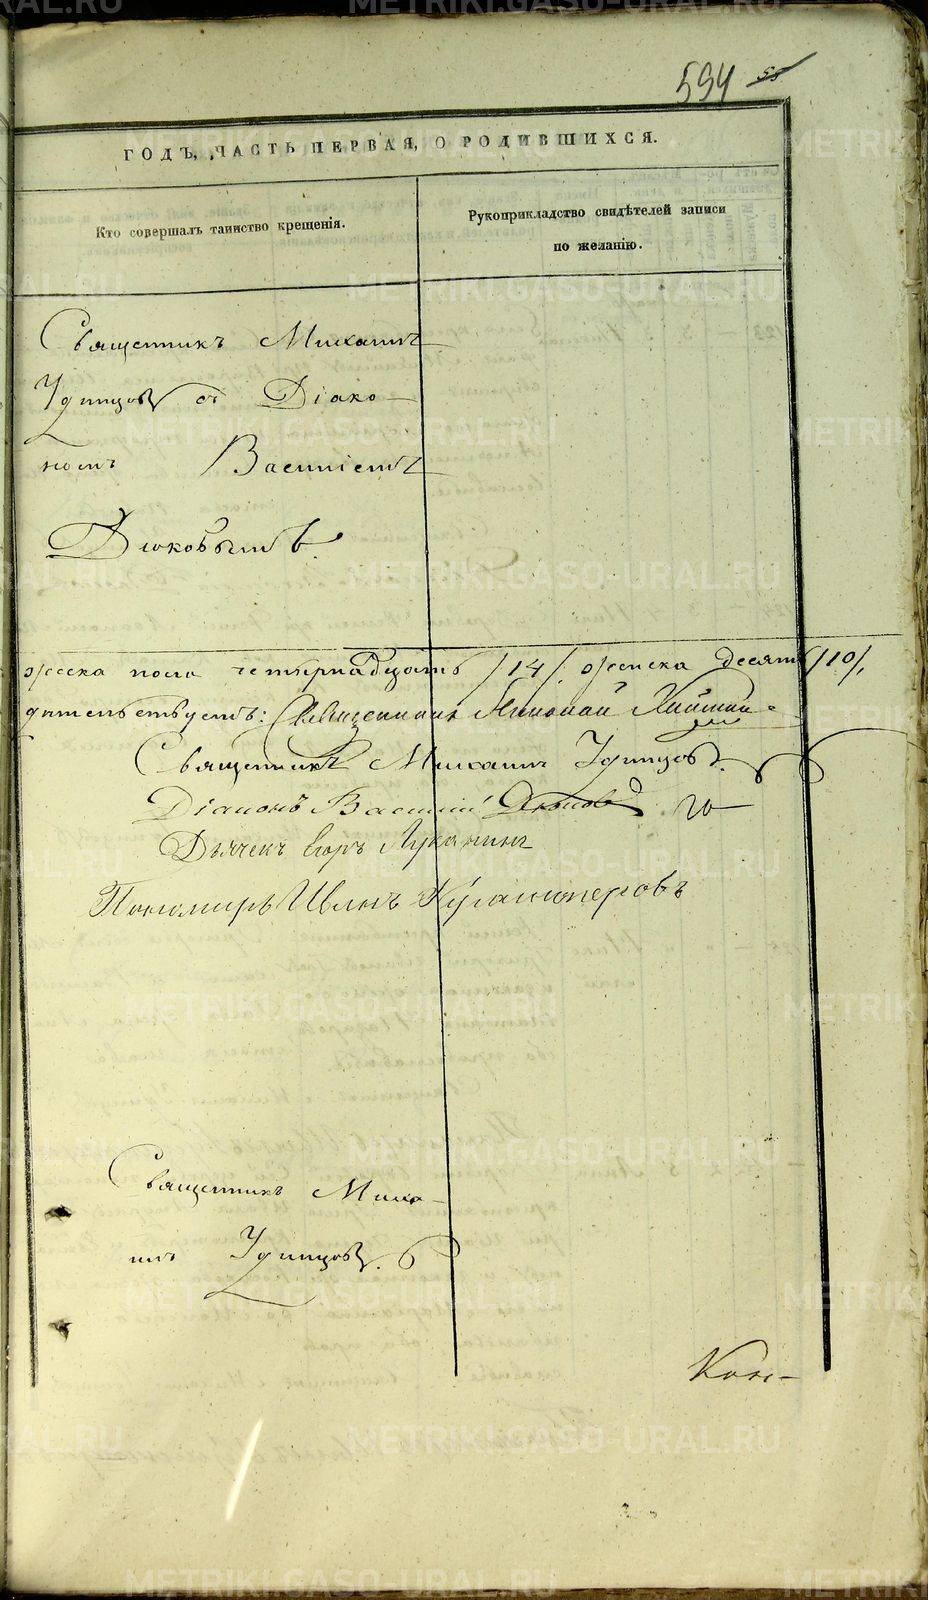 594 55
ГОДЪ, ЧАСТЬ ПЕРВАЯ, О РОДИВШИХСЯ.
Кто совершалъ таинство крещенія.
Рукоприкладство свидѣтелей записи
по желанію.
Священникъ Михаилъ
Удинцовъ съ Діако-
номъ Василіемъ
Дюковымъ.
жеска пола четырнадцать /14/. женска десять /10/.
дительствуемъ: Священникъ Николай
Священникъ Михаилъ Удинцовъ.
Діаконъ Василій Дюковъ
Дьячекъ Егоръ Луканинъ
Пономарь Иванъ
Священникъ Миха-
илъ Удинцовъ.
Кон-
METRIKI.GASO-URAL.RU